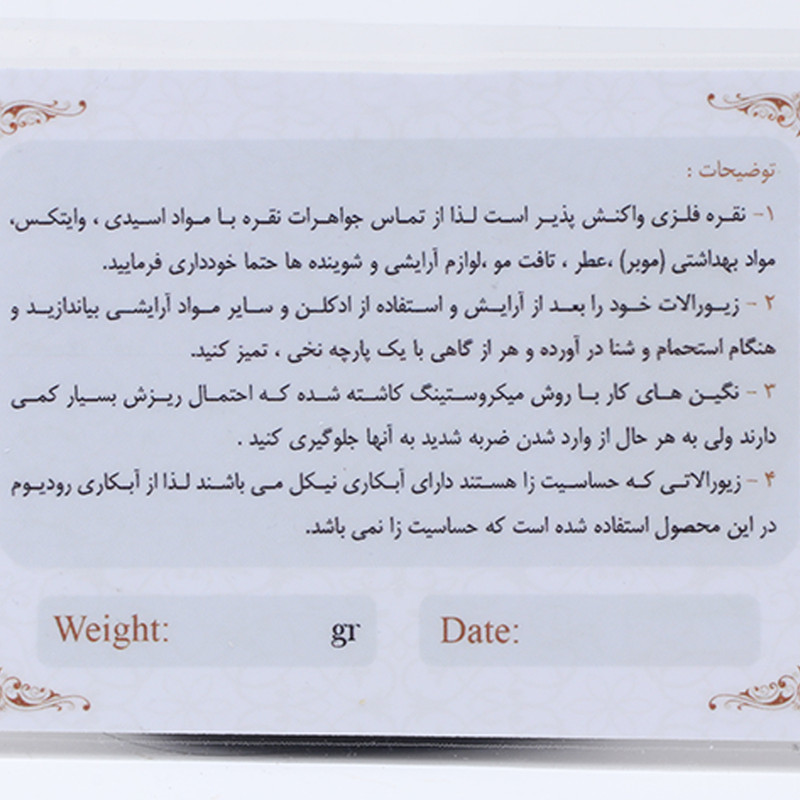 توضیحات :
۱- نقره فلزی واکنش پذیر است لذا از تماس جواهرات نقره با مواد اسیدی ، وایتکس،
مواد بهداشتی (موبر) ،عطر ، تافت مو ،لوازم آرایشی و شوینده ها حتما خودداری فرمایید.
۲ - زیورالات خود را بعد از آرایش و استفاده از ادکلن و سایر مواد آرایشی بیاندازید و
هنگام استحمام و شنا در آورده و هر از گاهی با یک پارچه نخی ، تمیز کنید.
۳ - نگین های کار با روش میکروستینگ کاشته شده که احتمال ریزش بسیار کمی
دارند ولی به هر حال از وارد شدن ضربه شدید به آنها جلوگیری کنید .
۴ - زیورالاتی که حساسیت زا هستند دارای آبکاری نیکل می باشند لذا از آبکاری رودیوم
در این محصول استفاده شده است که حساسیت زا نمی باشد.
Weight: gr Date: